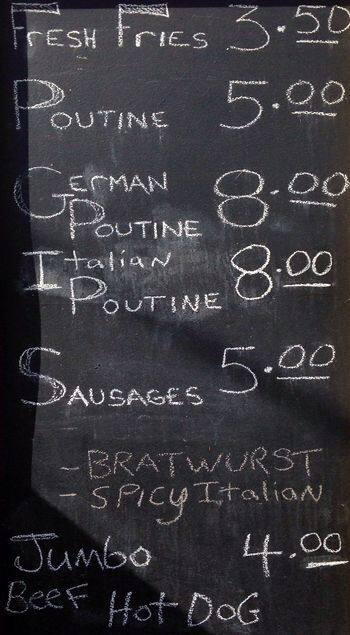 Fresh Fries 3.50
Poutine 5.00
German
Poutine 8.00
Italian
Poutine 8.00
Sausages 5.00
- BRATWURST
- SPicy Italian
Jumbo 4.00
Beef Hot DOG